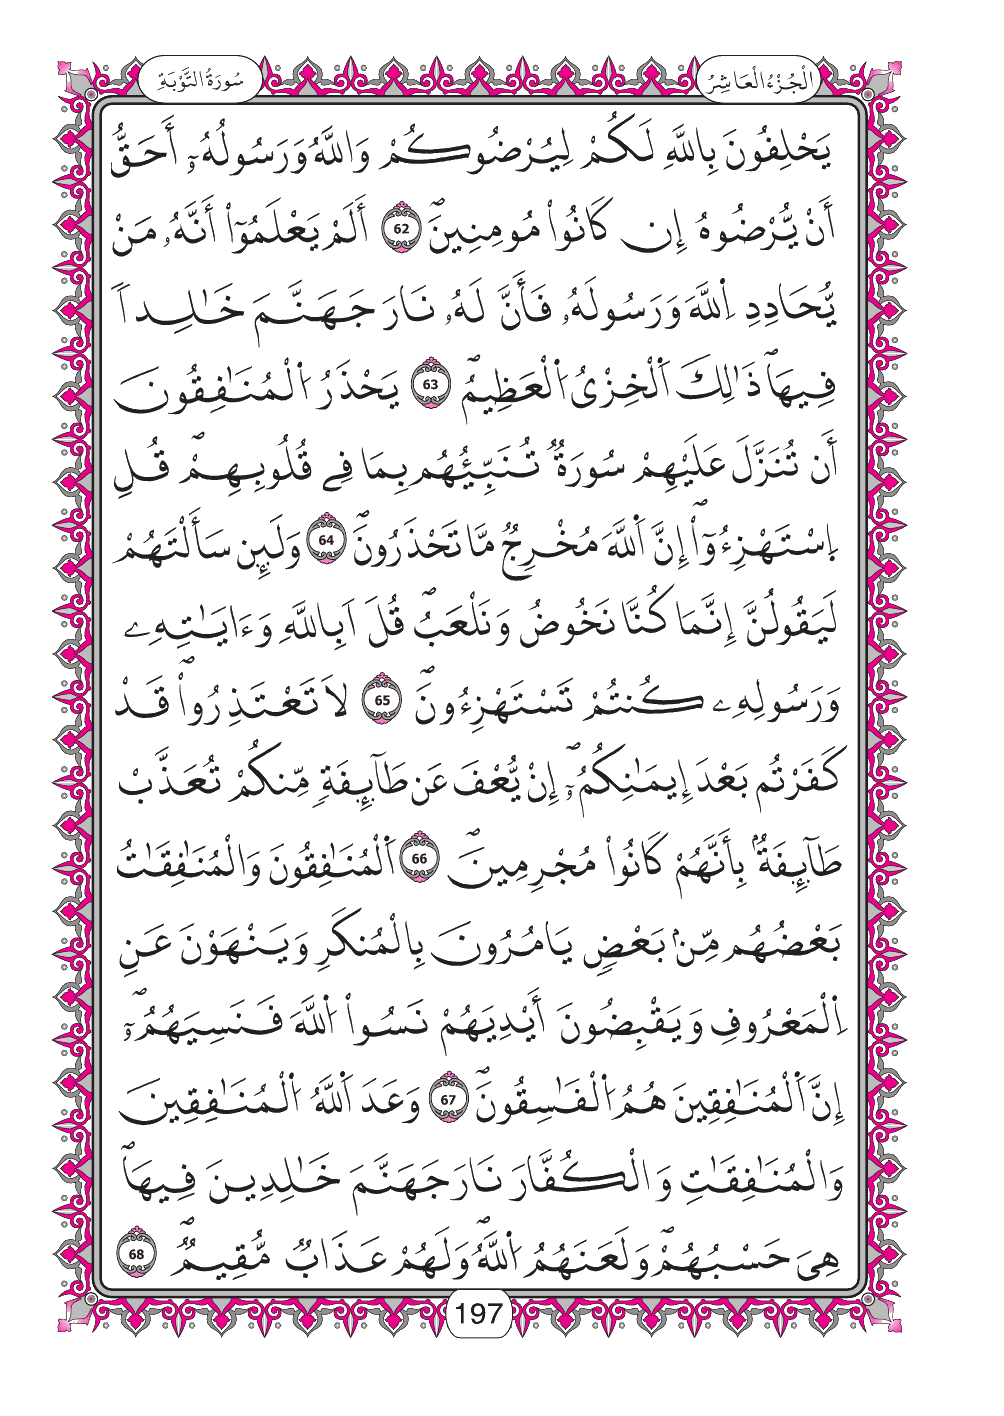 الْجُزْءُ الْعَاشِرُ
سُورَةُ التَّوْبَةِ
يَحْلِفُونَ بِاللَّهِ لَكُمْ لِيُرْضُوكُمْ وَاللَّهُ وَرَسُولُهُۥٓ أَحَقُّ
أَنْ يُّرْضُوهُ إِن كَانُواْ مُومِنِينَۖ 62 أَلَمْ يَعْلَمُوٓاْ أَنَّهُۥ مَنْ
يُّحَادِدِ اِللَّهَ وَرَسُولَهُۥ فَأَنَّ لَهُۥ نَارَ جَهَنَّمَ خَٰلِداٗ
فِيهَاۖ ذَٰلِكَ اَلْخِزْىُ اُلْعَظِيمُۖ 63 يَحْذَرُ اُلْمُنَٰفِقُونَ
أَن تُنَزَّلَ عَلَيْهِمْ سُورَةٞ تُنَبِّئُهُم بِمَا فِے قُلُوبِهِمْۖ قُلِ
اِسْتَهْزِءُوٓاْۖ إِنَّ اَللَّهَ مُخْرِجٞ مَّا تَحْذَرُونَۖ 64 وَلَئِن سَأَلْتَهُمْ
لَيَقُولُنَّ إِنَّمَا كُنَّا نَخُوضُ وَنَلْعَبُۖ قُلَ اَبِاللَّهِ وَءَايَٰتِهِۦ
وَرَسُولِهِۦ كُنتُمْ تَسْتَهْزِءُونَۖ 65 لَا تَعْتَذِرُواْۖ قَدْ
كَفَرْتُم بَعْدَ إِيمَٰنِكُمُۥٓۖ إِنْ يُّعْفَ عَن طَآئِفَةٖ مِّنكُمْ تُعَذَّبْ
طَآئِفَةُۢ بِأَنَّهُمْ كَانُواْ مُجْرِمِينَۖ 66 اَلْمُنَٰفِقُونَ وَالْمُنَٰفِقَٰتُ
بَعْضُهُم مِّنۢ بَعْضٖ يَامُرُونَ بِالْمُنكَرِ وَيَنْهَوْنَ عَنِ
اِلْمَعْرُوفِ وَيَقْبِضُونَ أَيْدِيَهُمْ نَسُواْ اُللَّهَ فَنَسِيَهُمُۥٓۖ
إِنَّ اَلْمُنَٰفِقِينَ هُمُ اُلْفَٰسِقُونَۖ 67 وَعَدَ اَللَّهُ اُلْمُنَٰفِقِينَ
وَالْمُنَٰفِقَٰتِ وَالْكُفَّارَ نَارَ جَهَنَّمَ خَٰلِدِينَ فِيهَاۖ
هِىَ حَسْبُهُمْۖ وَلَعَنَهُمُ اُللَّهُۖ وَلَهُمْ عَذَابٞ مُّقِيمٞۖ 68
197